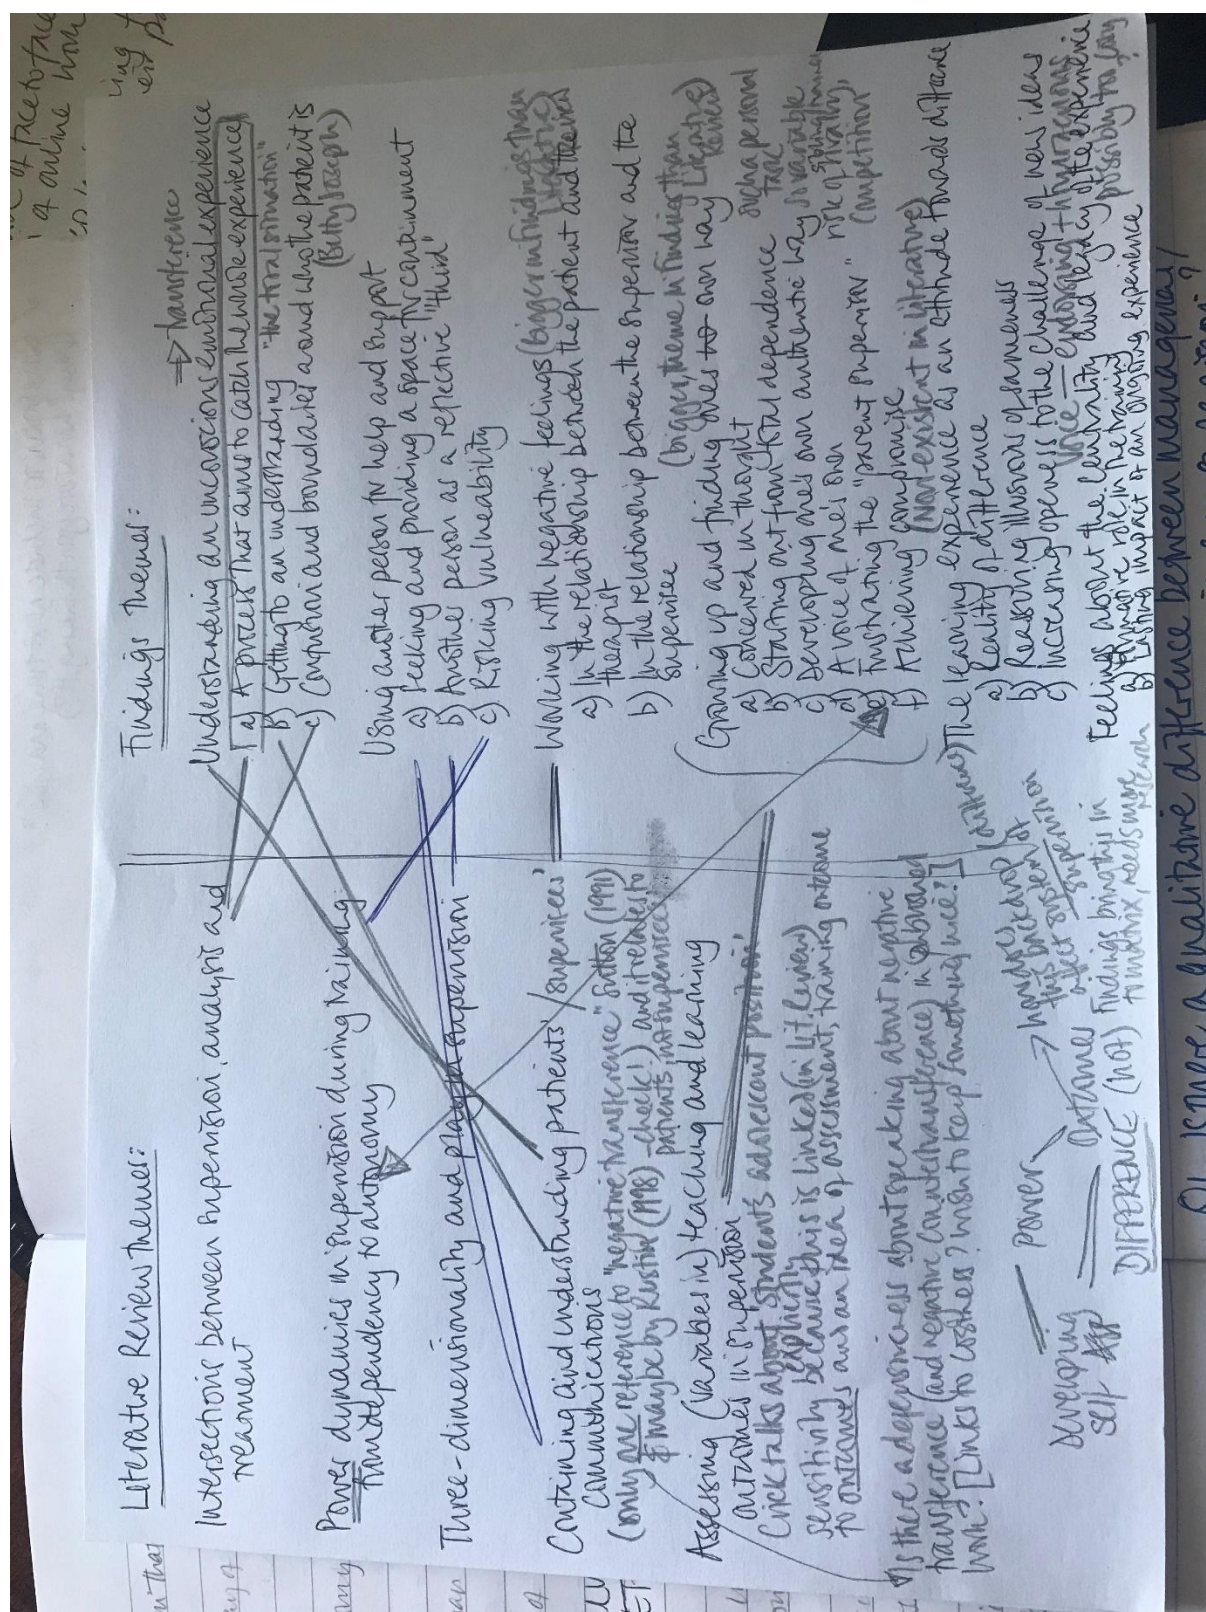 Literature Review Themes:
Intersections between supervision, analysis and
treatment
Power dynamics in supervision during training:
from dependency to autonomy
Three-dimensionality and play in supervision
Containing and understanding patients' / supervisees'
communications
(only one reference to "negative transference" Sutton (1991)
& maybe by Rustin (1998) - check!) and it relates to
patients, not supervisees
Assessing (variables in) teaching and learning
outcomes in supervision
Crick talks about students 'adolescent position',
explicitly
sensitivity because this is linked (in Lit. Review)
to outcomes and an idea of assessment, training outcome
Is there a defensiveness about speaking about negative
transference (and negative countertransference) in published
work? [Links to costliness? Wish to keep something 'nice'?]
Power
Developing
self
Outcomes
hardness,
this backdrop of
after supervision
DIFFERENCE (not)
Findings bring this in
to matrix, needs more
research
Findings Themes:
→ transference
Understanding an unconscious/emotional experience
a) A process that aims to catch the whole experience
b) Getting to an understanding "the total situation"
c) Confusion and boundaries around who the patient is
(Betty Joseph)
Using another person for help and support
a) Seeking and providing a space for containment
b) Another person as a reflective "third"
c) Risking vulnerability
Working with negative feelings (bigger in findings than
literature)
a) In the relationship between the patient and the
therapist
b) In the relationship between the supervisor and the
supervisee
(bigger theme in findings than
Literature
Review)
Growing up and finding ones own way
a) Conceived in thought
such a personal
tale
b) Starting out from total dependence
c) Developing one's own authentic way
so variable
d) A voice of one's own
sibling
risk of rivalry,
competition
e) Frustrating the "parent supervisor"
f) Achieving compromise
(Non-existent in Literature)
(difference) The learning experience as an attitude towards difference
a) Reality of difference
b) Reassuring illusions of sameness
c) Increasing openness to the challenge of new ideas
Feelings about the centrality and legacy of the experience
a) Formative role in the training
b) Lasting impact of an ongoing experience
possibly too, early
Is there a qualitative difference between managerial
of face to face
of online work